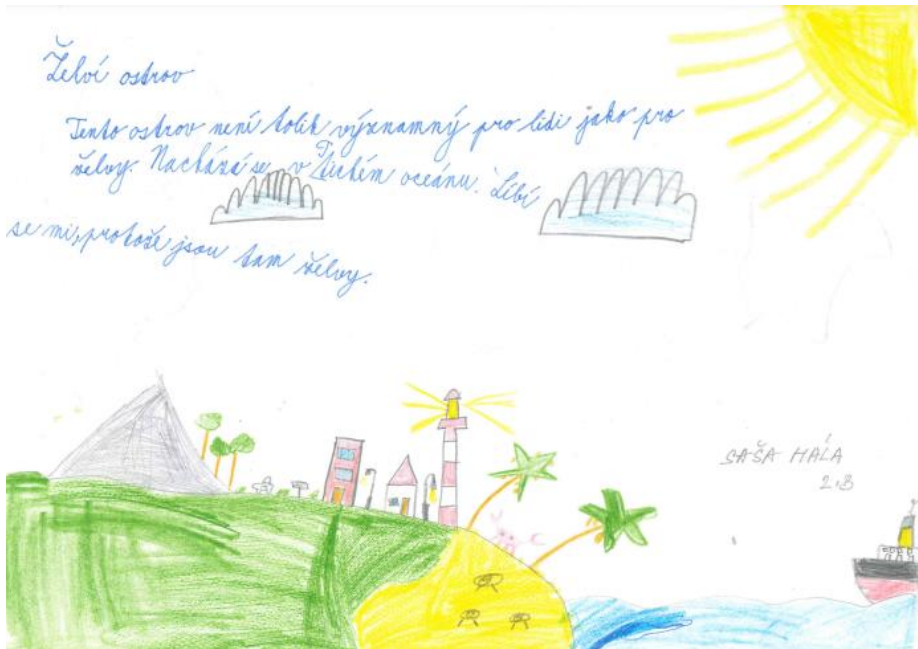 Želví ostrov
Tento ostrov není tolik významný pro lidi jako pro
želvy. Nachází se v Tichém oceánu. Líbí
se mi, protože jsou tam želvy.
SAŠA HÁLA
2.B